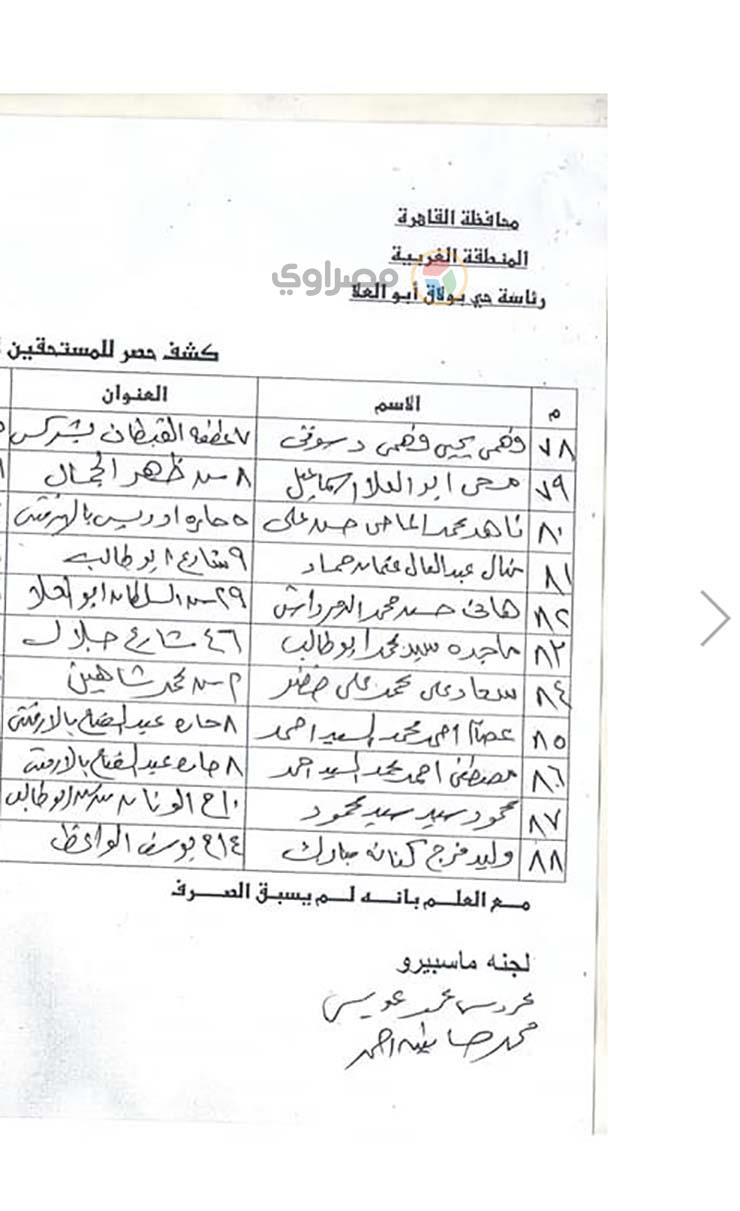 محافظة القاهرة
المنطقة الغربية
مصراوي
رئاسة حي بولاق أبو العلا
كشف حصر للمستحقين
م الاسم العنوان
٧٨ فهمى يحيى فهمى دسوقى ٧ عطفه القبطان بشركس
٧٩ ابو العلا اسماعيل ٨ ظهر الجمال
٨٠ ناهد محمد حسن على ٥ حاره ادريس
٨١ منال عبدالعال عثمان حماد ٩ شارع ابو طالب
٨٢ هانى حسن محمد ٢٩ السلطان ابو العلا
٨٣ ماجده سيد محمد ابو طالب ٤٦ شارع جلال
٨٤ سعاد على محمد على خضر ٢ محمد شاهين
٨٥ عصام احمد محمد السيد احمد ٨ حاره عبد
٨٦ مصطفى احمد محمد السيد احمد ٨ حاره عبد
٨٧ محمود سيد سيد محمود ابو طالب
٨٨ وليد فرج كنانه مبارك يوسف الواعظ
مع العلم بانه لم يسبق الصرف
لجنه ماسبيرو
عويس
محمد احمد